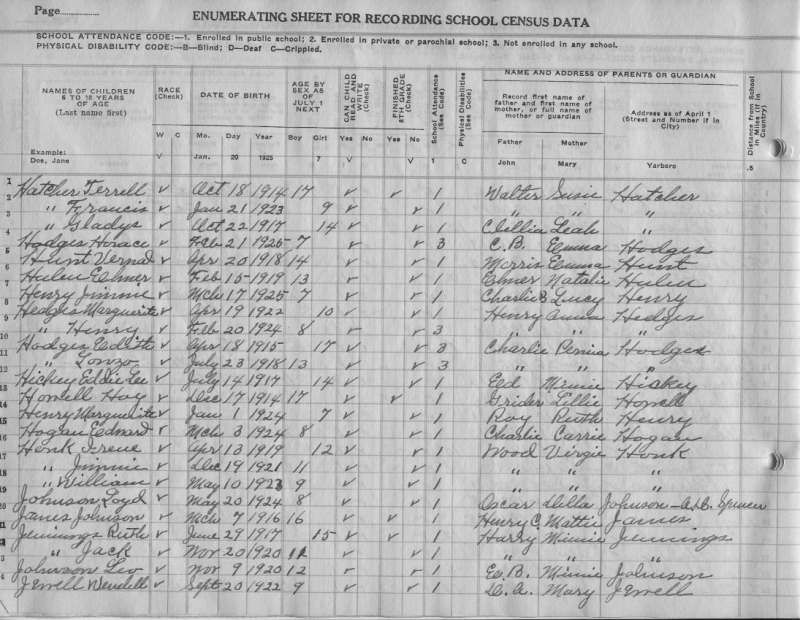 Page
ENUMERATING SHEET FOR RECORDING SCHOOL CENSUS DATA
SCHOOL ATTENDANCE CODE:—1. Enrolled in public school; 2. Enrolled in private or parochial school; 3. Not enrolled in any school.
PHYSICAL DISABILITY CODE:—B—Blind; D—Deaf C—Crippled.
NAMES OF CHILDREN 6 TO 18 YEARS OF AGE (Last name first)
RACE (Check)
W C
DATE OF BIRTH
Mo. Day Year
AGE BY SEX AS OF JULY 1 NEXT
Boy Girl
CAN CHILD READ AND WRITE (Check)
Yes No
FINISHED 8TH GRADE (Check)
Yes No
School Attendance (See Code)
Physical Disabilities (See Code)
NAME AND ADDRESS OF PARENTS OR GUARDIAN
Record first name of father and first name of mother, or full name of mother or guardian
Father Mother
Address as of April 1 (Street and Number if in City)
Distance from School in Miles (if in Country)
Example: Doe, Jane V Jan. 20 1925 7 V V 1 C John Mary Yarboro .5
1 Hatcher Terrell v Oct 18 1914 17 v v 1 Walter Susie Hatcher
2 " Francis v Jan 21 1923 9 v v 1 " " "
3 " Gladys v Oct 22 1917 14 v v 1 Leah "
4 Hodges Horace v Feb 21 1925 7 v v 3 C.B. Emma Hodges
5 Hunt Vernal v Apr 20 1918 14 v v 1 Morris Emma Hunt
6 Hulen Elmer v Feb 15 1919 13 v v 1 Elmer Natalie Hulen
7 Henry Jimmie v Mch 17 1925 7 v v 1 Charlie Lucy Henry
8 Hedges Marguerite v Apr 19 1922 10 v v 1 Henry Anna Hedges
9 " Henry v Feb 20 1924 8 v v 3 " " "
10 Hodges Edith v Apr 18 1915 17 v v 3 Charlie Hodges
11 " Lonzo v July 23 1918 13 v v 3 " " "
12 Hickey Eddie Lee v July 14 1917 14 v v 1 Ed Minnie Hickey
13 Howell Hoy v Dec 17 1914 17 v v 1 Grider Lillie Howell
14 Henry Marguerite v Jan 1 1924 7 v v 1 Roy Ruth Henry
15 Hogan Edward v Mch 3 1924 8 v v 1 Charlie Carrie Hogan
16 Honk Irene v Apr 13 1919 12 v v 1 Wood Virgie Honk
17 " Jimmie v Dec 19 1921 11 v v 1 " " "
18 " William v May 10 1923 9 v v 1 " " "
19 Johnson Loyd v May 20 1924 8 v v 1 Oscar Della Johnson - Spencer
20 James Johnson v Mch 7 1916 16 v v 1 Henry C. Mattie James
Jennings Ruth v June 29 1917 15 v v 1 Harry Minnie Jennings
" Jack v Nov 20 1920 11 v v 1 " " "
Johnson Leo v Nov 9 1920 12 v v 1 Ed. B. Minnie Johnson
Jewell Wendell v Sept 20 1922 9 v v 1 Mary Jewell